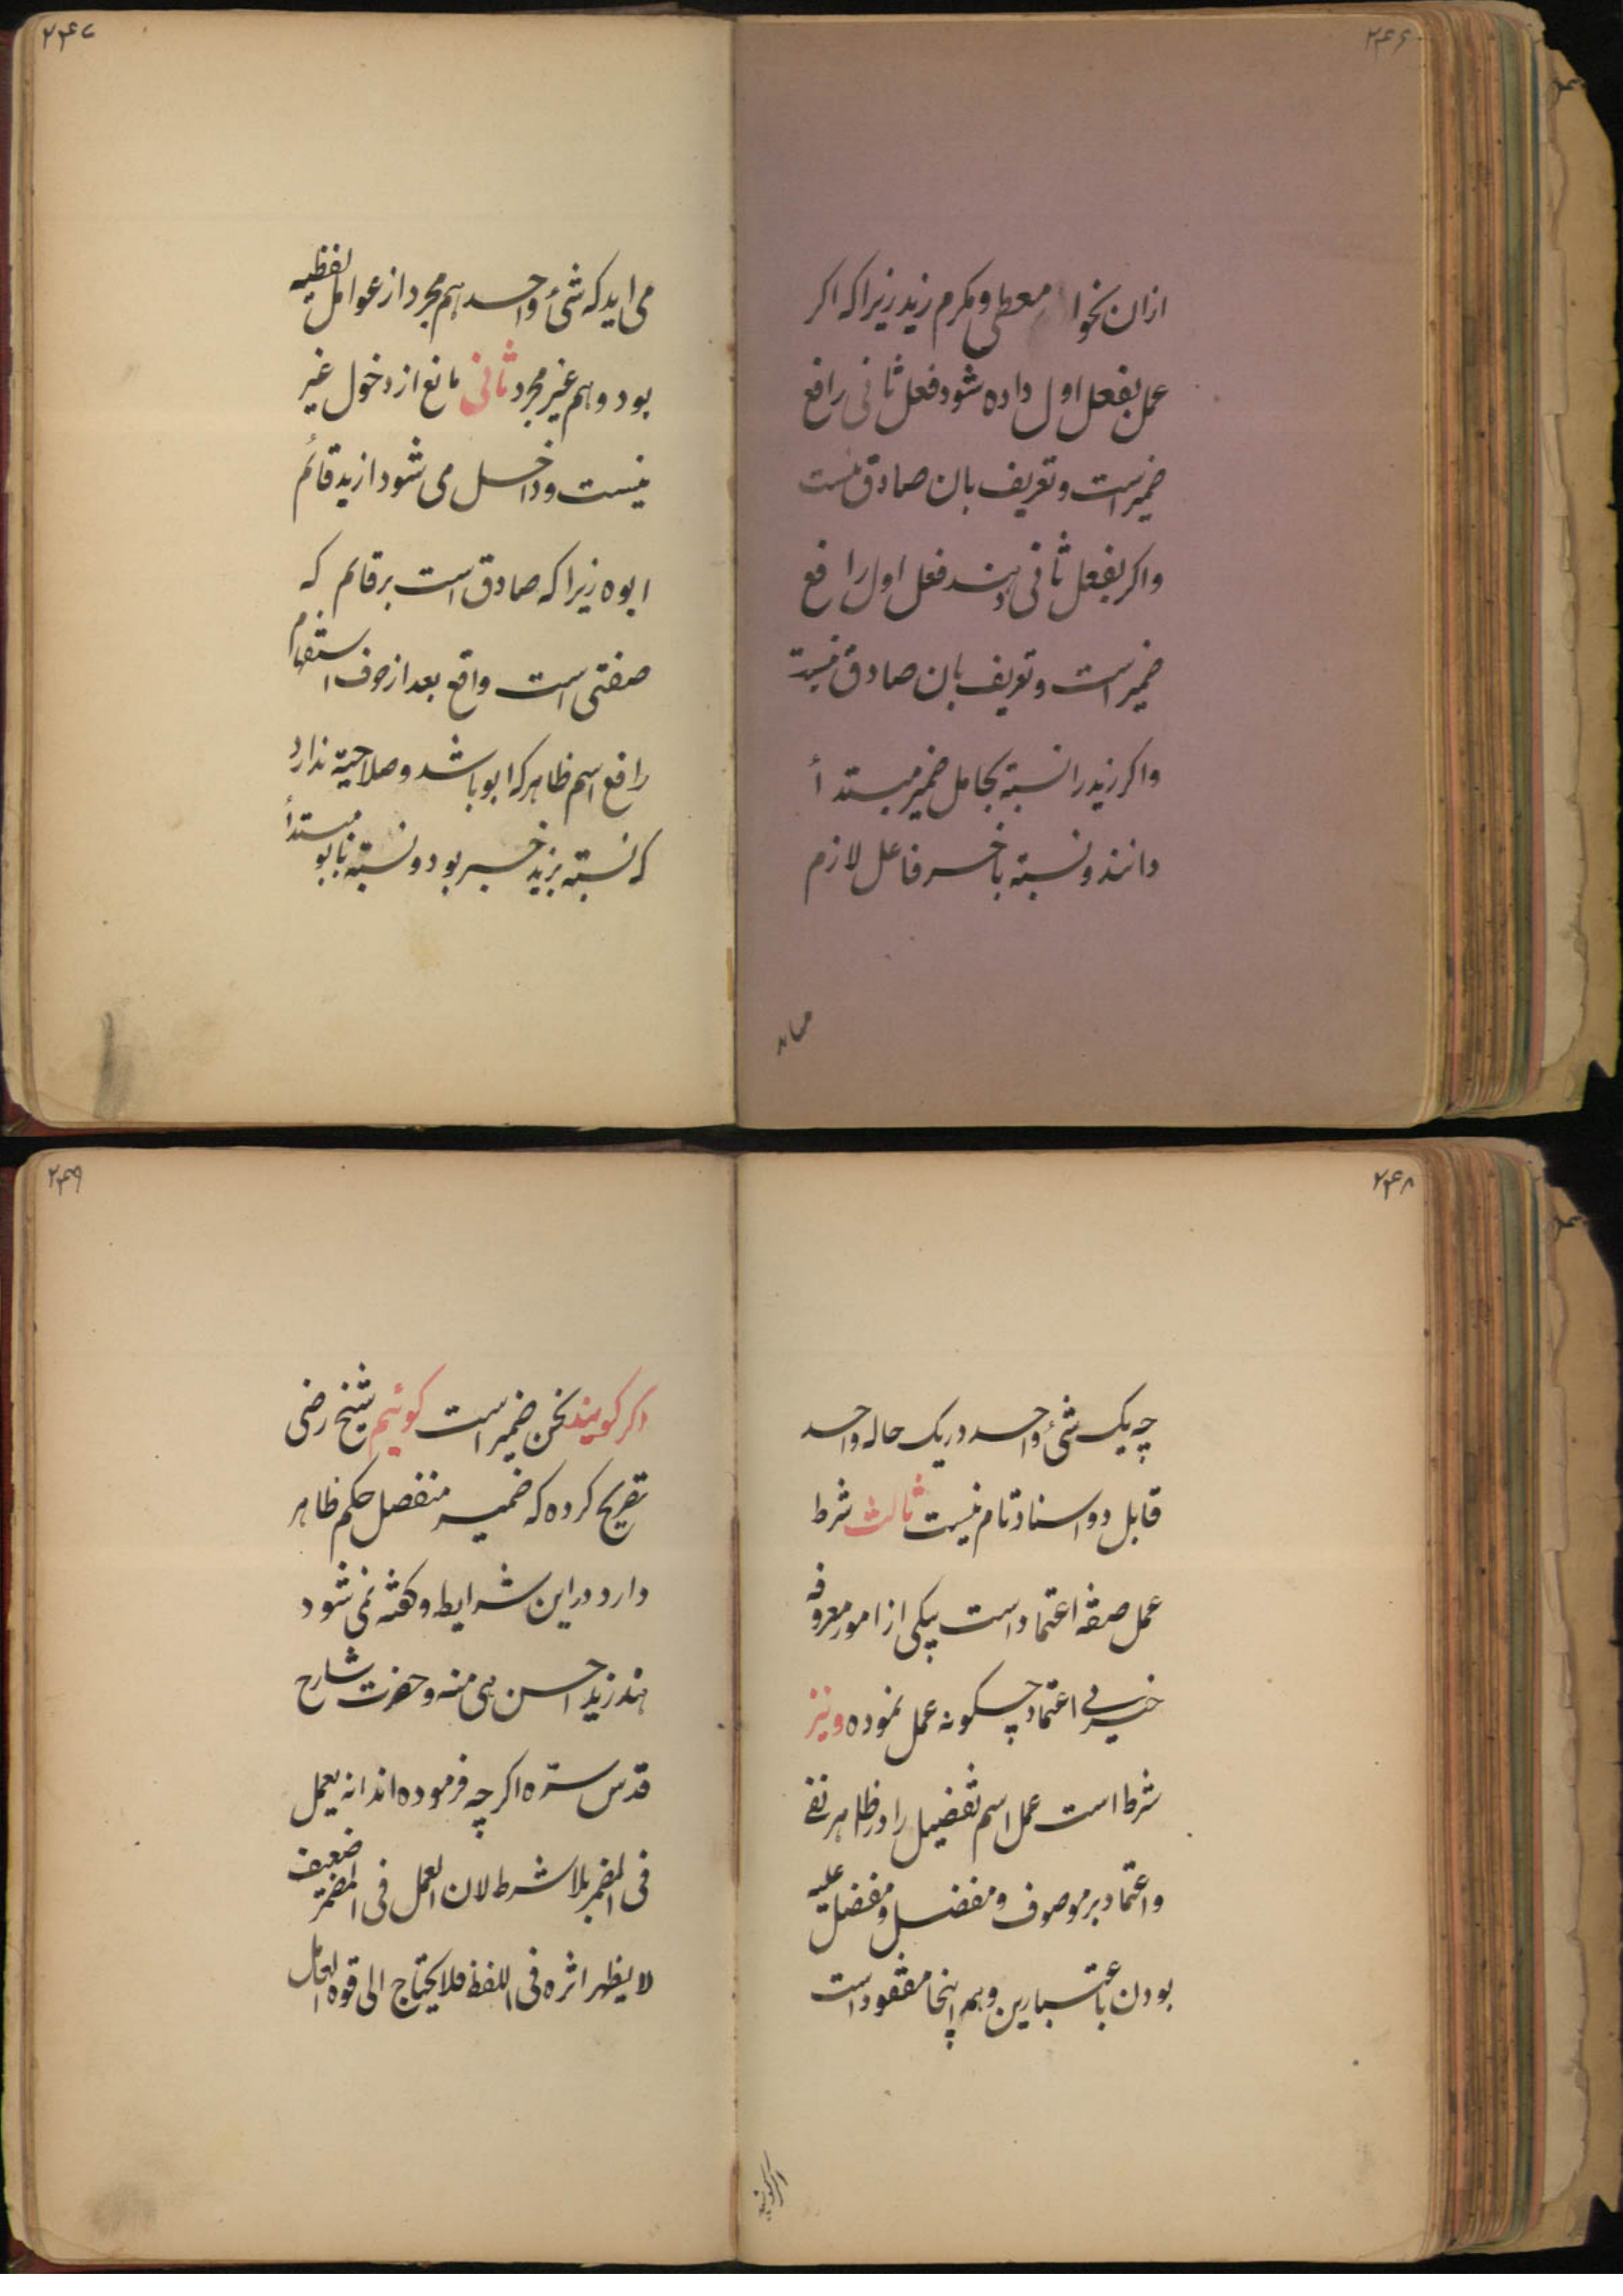 ۲۴۶
ازان نحو ا معطی و مکرم زید زیرا که اکر
عمل بفعل اول داده شود فعل ثانی رافع
ضمیر است و تعریف بان صادق نیست
واکر بفعل ثانی دهند فعل اول رافع
ضمیر است و تعریف بان صادق نیست
واکر زید را نسبته بحامل ضمیر مبتدأ
دانند و نسبته باخر فاعل لازم
می‌اید
۲۴۷
می اید که شئ واحد هم مجرد از عوامل لفظیه
بود و هم غیر مجرد ثانی مانع از دخول غیر
نیست و داخل می شود ازید قائم
ابوه زیرا که صادق است بر قائم که
صفتی است واقع بعد از حرف استفهام
رافع اسم ظاهر که ابو باشد و صلاحیته ندارد
که نسبته بزید خبر بود و نسبته بابو مبتدأ
۲۴۸
چه یک شئ واحد در یک حاله واحد
قابل دو اسناد تام نیست ثالث شرط
عمل صفه اعتماد است بیکی از امور معروفه
خیر بی اعتماد چکونه عمل نموده و نیز
شرط است عمل اسم تفضیل را در ظاهر نفی
واعتماد بر موصوف و مفضل و مفضل علیه
بودن باعتبارین و هم اینجا مفقود است
اکر کویند
۲۴۹
اکر کویند نحن ضمیر است کوئیم شیخ رضی
تصریح کرده که ضمیر منفصل حکم ظاهر
دارد در این شرایط و کفته نمی شود
هند زید احسن هی منه و حضرت شارح
قدس سرّه اکر چه فرموده اند انه یعمل
فی المضمر بلا شرط لان العمل فی المضمر ضعیف
لا یظهر اثره فی اللفظ فلا یحتاج الی قوه العامل